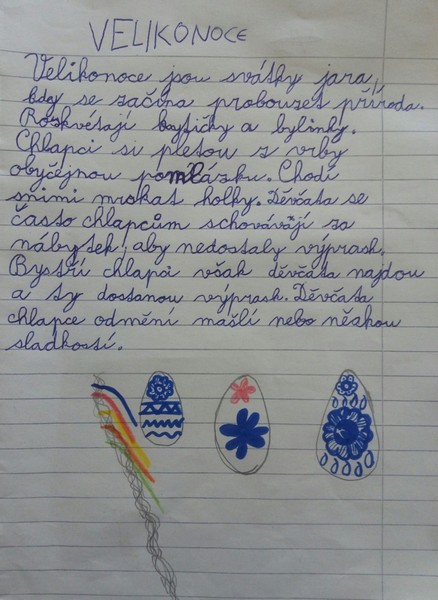 VELIKONOCE
Velikonoce jsou svátky jara,
kdy se začíná probouzet příroda.
Rozkvétají kytičky a bylinky.
Chlapci si pletou z vrby
obyčejnou pomlázku. Chodí
snimi mrskat holky. Děvčata se
často chlapcům schovávájí za
nábytek, aby nedostaly výprask.
Bystří chlapci však děvčata najdou
a ty dostanou výprask. Děvčata
chlapce odmění mašlí nebo nějakou
sladkostí.